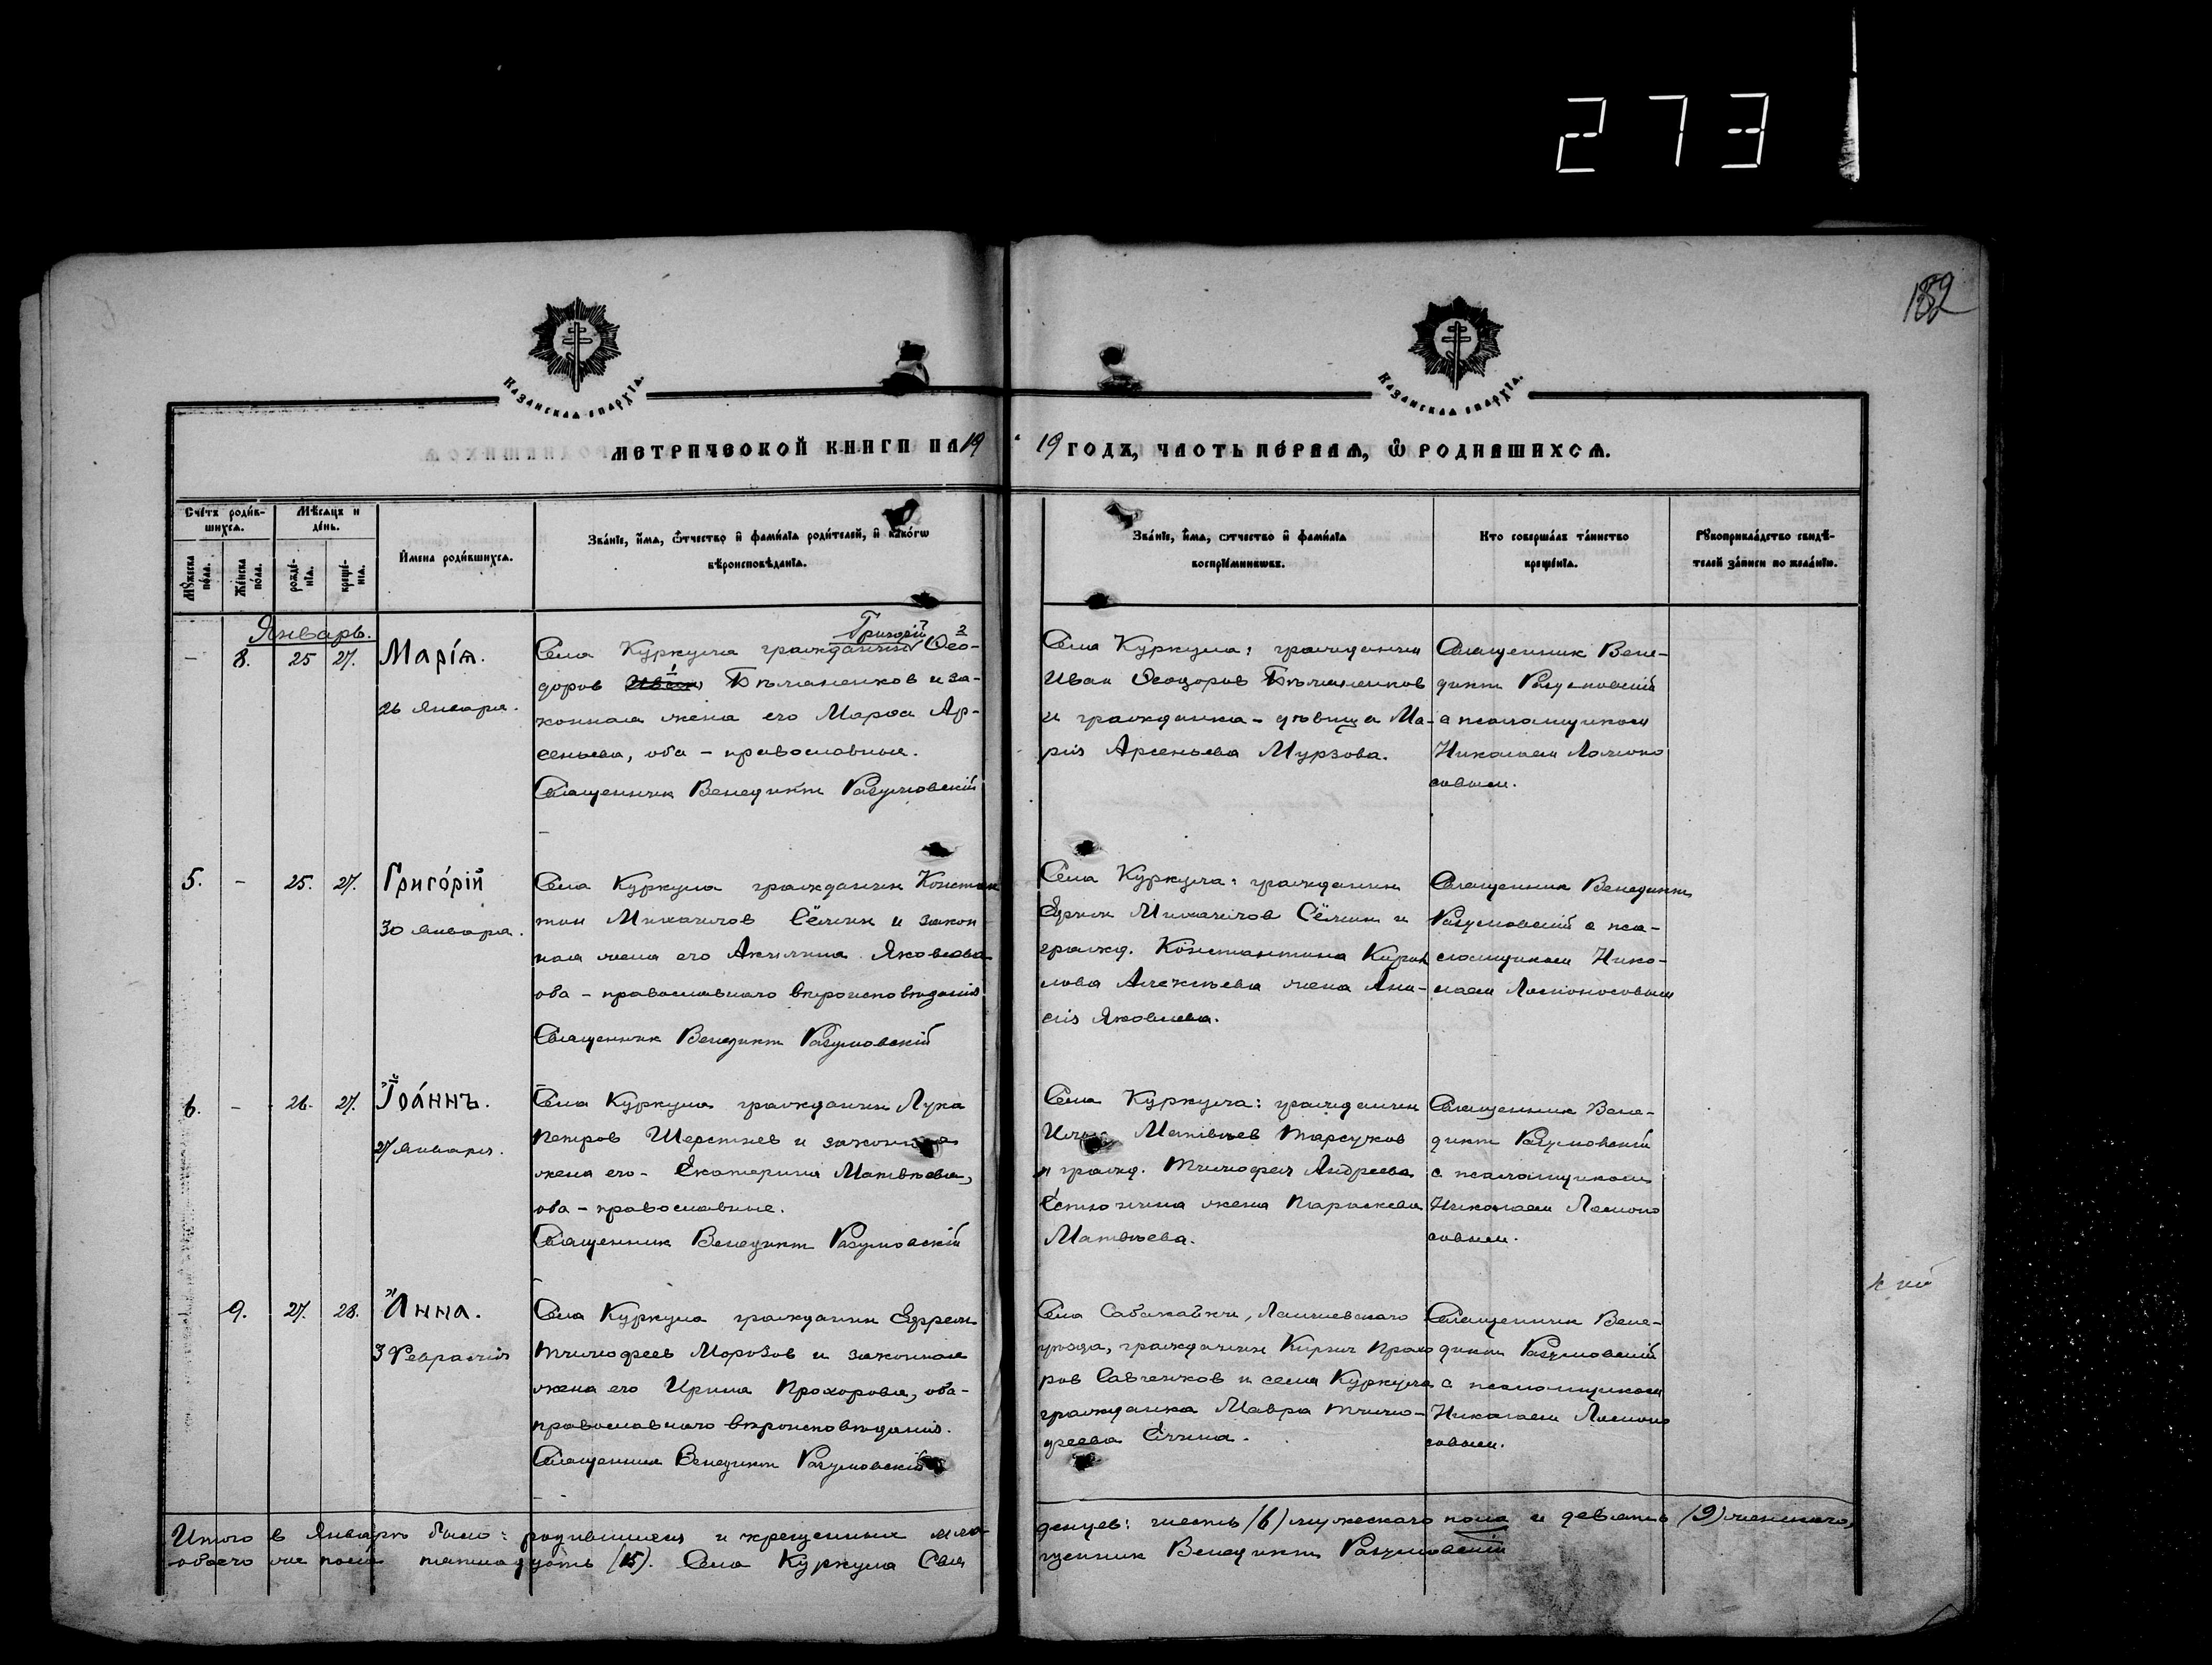 273
182
Казанская епархїа.
Казанская епархїа.
МЕТРИЧЕСКОЙ КНИГИ НА 19
19 ГОДЪ, ЧАСТЬ ПЕРВАѦ, Ѡ РОДИВШИХСѦ.
Счетъ роди́в-
шихсѧ.
Мѣсѧцъ и
де́нь.
Мꙋжеска
по́ла.
Же́нска
по́ла.
рожде́-
нїѧ.
креще́-
нїѧ.
И҆мена роди́вшихсѧ.
Зва́нїе, и҆́мѧ, ѻ҆́тчество и҆ фами́лїѧ роди́телей, и҆ како́гѡ
вѣроисповѣ́данїѧ.
Зва́нїе, и҆́мѧ, ѻ҆тчество и҆ фами́лїѧ
воспрїе́мникѡвъ.
Кто соверша́лъ та́инство
креще́нїѧ.
Рꙋкоприкла́дство свидѣ́-
телей за́писи по жела́нїю.
Январь.
- 8. 25 27. Марі́ѧ.
26 января.
Села Куркуля гражданин Григорій 2 Ѳео-
доров 1 Иван Бѣляненков и за-
конная жена его Марѳа Ар-
сеньева, оба - православные.
Священник Венедикт Разумовскій
Села Куркуля: гражданин
Иван Ѳеодоров Бѣляненков
и гражданка - дѣвица Ма-
рія Арсеньева Мурзова.
Священник Вене-
дикт Разумовскій
с псаломщиком
Николаем Ломоно
совым.
5. - 25. 27. Григо́рій
30 января.
Села Куркуля гражданин Констан
тин Михаилов Сёмин и закон
ная жена его Акилина Яковлева
оба - православнаго вѣроисповѣданія
Священник Венедикт Разумовскій
Села Куркуля: гражданин
Михаилов Сёмин и
гражд. Константина Кирил
лова Алексѣева жена Ани-
сія Яковлева.
Священник Венедикт
Разумовскій с пса-
ломщиком Нико-
лаем Ломоносовым
6. - 26. 27. Іоа́ннъ.
27 января.
Села Куркуля гражданин Лука
Петров Шерстнев и законная
жена его - Екатерина Матвѣева,
оба - православные.
Священник Венедикт Разумовскій
Села Куркуля: гражданин
Илья Матвѣев Тарсуков
и гражд. Тимофея Андреева
жена Параскева
Матвѣева.
Священник Вене-
дикт Разумовскій
с псаломщиком
Николаем Ломоно
совым.
- 9. 27. 28. А҆́нна.
3 Февраля
Села Куркуля гражданин Ефрем
Тимофеев Морозов и законная
жена его Ирина Прохорова, оба -
православнаго вѣроисповѣданія.
Священник Венедикт Разумовскій
Села Сабакайки, Лаишевскаго
уѣзда, гражданин Кирил Прохо
ров Савченков и села Куркуля
гражданка Мавра Тимо-
феева Ёлкина.
Священник Вене-
дикт Разумовскій
с псаломщиком
Николаем Ломоно
совым.
Итого в январѣ было: родившихся и крещенных мла-
денцев: шесть (6) мужескаго пола и девять (9) женскаго,
обоего же пола пятнадцать (15). Села Куркуля Свя
щенник Венедикт Разумовскій